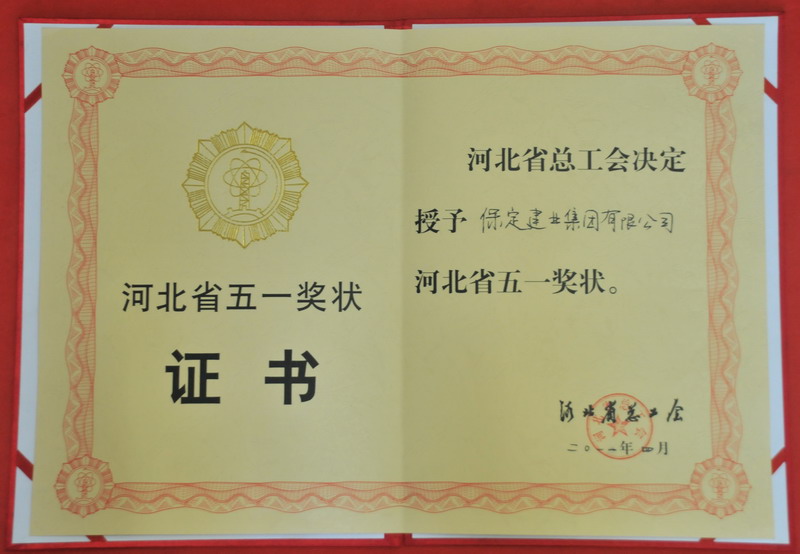 河北省五一奖状
证书
河北省总工会决定
授予 保定建业集团有限公司
河北省五一奖状。
河北省总工会
二〇一一年 四月